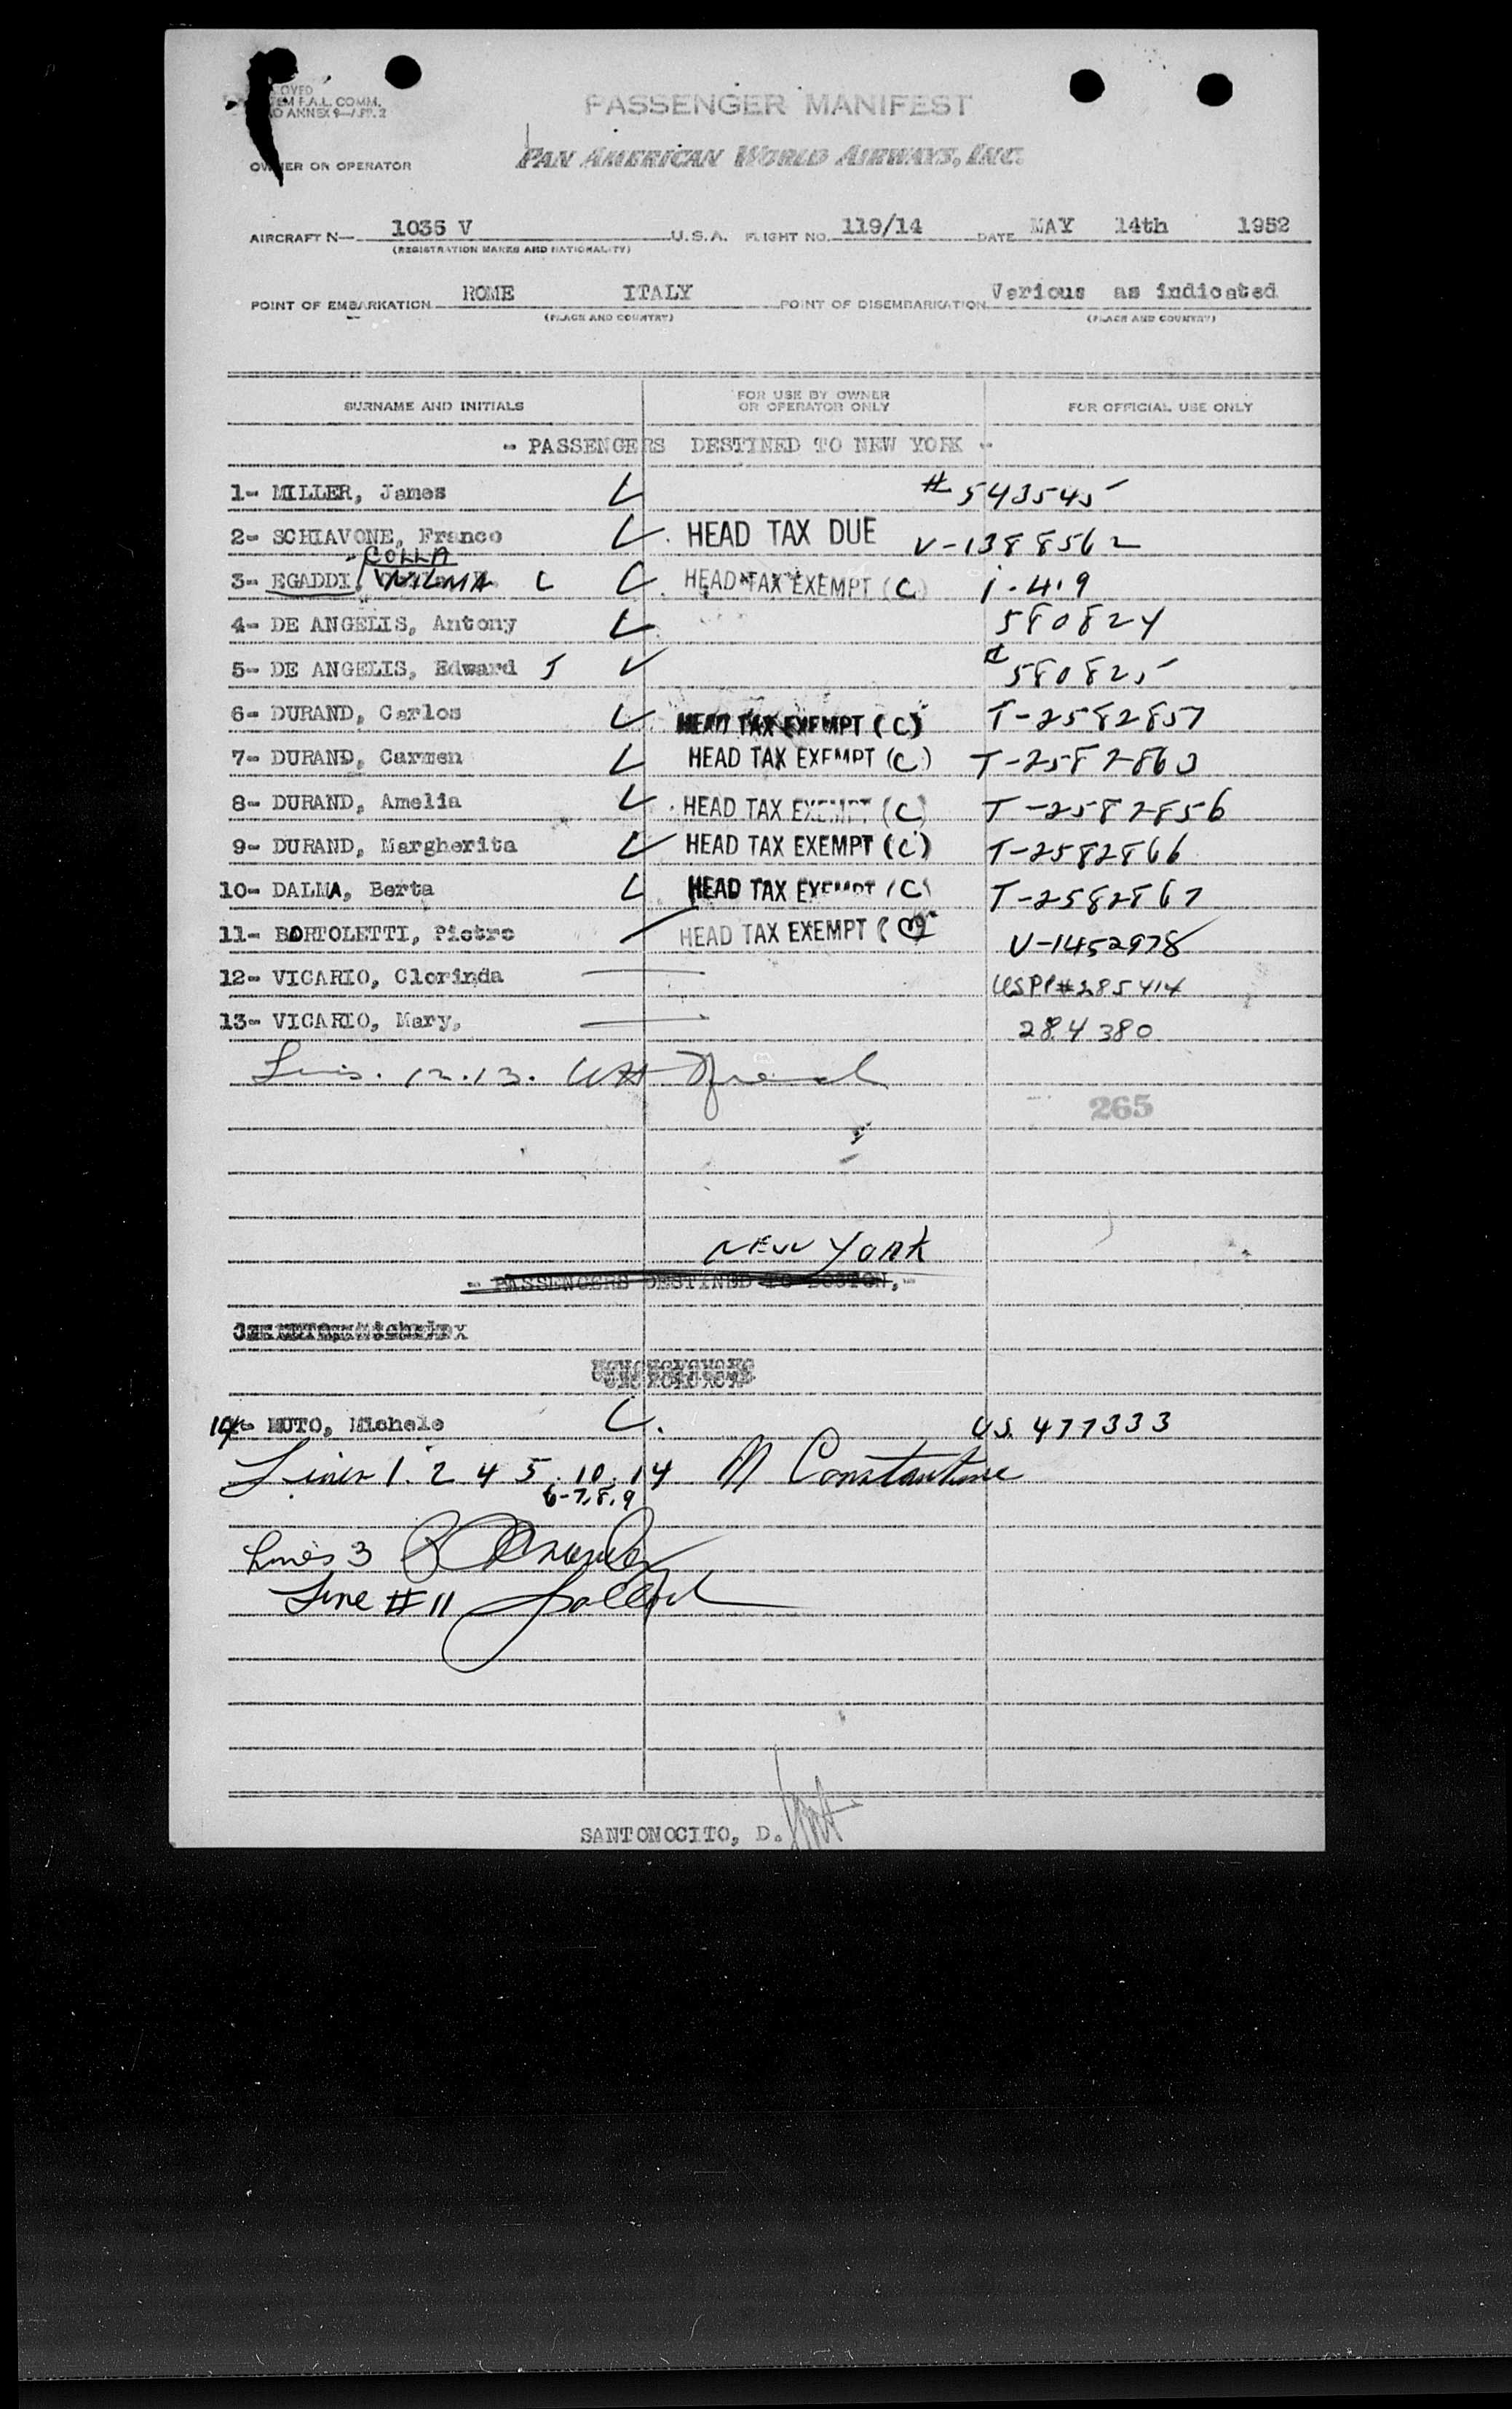 OVED
F.A.L. COMM.
ANNEX 9—APP. 2
PASSENGER MANIFEST
OWNER OR OPERATOR PAN AMERICAN WORLD AIRWAYS, INC.
AIRCRAFT N— 1036 V U.S.A. FLIGHT NO. 119/14 DATE MAY 14th 1952
(REGISTRATION MARKS AND NATIONALITY)
POINT OF EMBARKATION ROME ITALY POINT OF DISEMBARKATION Various as indicated
(PLACE AND COUNTRY) (PLACE AND COUNTRY)
SURNAME AND INITIALS FOR USE BY OWNER OR OPERATOR ONLY FOR OFFICIAL USE ONLY
- PASSENGERS DESTINED TO NEW YORK -
1- MILLER, James # 543545
2- SCHIAVONE, Franco HEAD TAX DUE V-1388562
COLLA
3- EGADDI, WILMA C HEAD TAX EXEMPT (C) 1.4.9
4- DE ANGELIS, Antony 580824
5- DE ANGELIS, Edward J # 580825
6- DURAND, Carlos HEAD TAX EXEMPT (C) T-2582857
7- DURAND, Carmen HEAD TAX EXEMPT (C) T-2582863
8- DURAND, Amelia HEAD TAX EXEMPT (C) T-2582856
9- DURAND, Margherita HEAD TAX EXEMPT (C) T-2582866
10- DALMA, Berta HEAD TAX EXEMPT (C) T-2582867
11- BORTOLETTI, Pietro HEAD TAX EXEMPT V-1452978
12- VICARIO, Clorinda USPP# 285414
13- VICARIO, Mary, 284380
Lines. 12.13.
265
NEW YORK
- PASSENGERS DESTINED TO BOSTON,-
14- MUTO, Michele U.S. 477333
Lines 1. 2 4 5. 10. 14 M Constantine
6-7.8.9
Lines 3
Line # 11
SANTONOCITO, D.